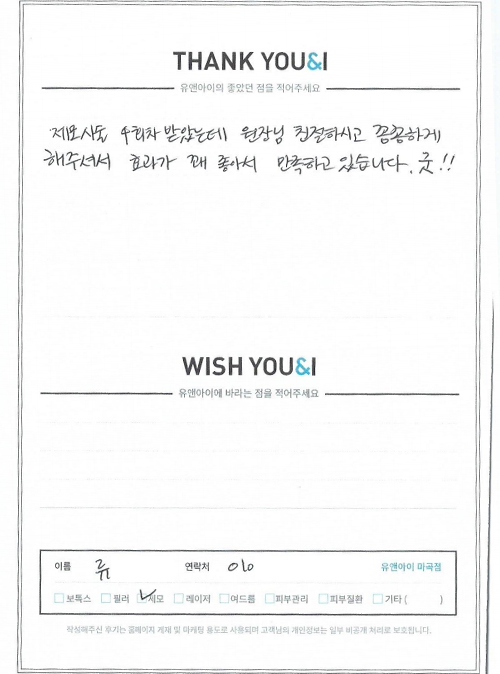 THANK YOU&I
유앤아이의 좋았던 점을 적어주세요
제모시술 4회차 받았는데 원장님 친절하시고 꼼꼼하게
해주셔서 효과가 꽤 좋아서 만족하고 있습니다. 굿!!
WISH YOU&I
유앤아이에 바라는 점을 적어주세요
이름 류 연락처 010 유앤아이 마곡점
보톡스 필러 제모 레이저 여드름 피부관리 피부질환 기타 ( )
작성해주신 후기는 홈페이지 게재 및 마케팅 용도로 사용되며 고객님의 개인정보는 일부 비공개 처리로 보호됩니다.